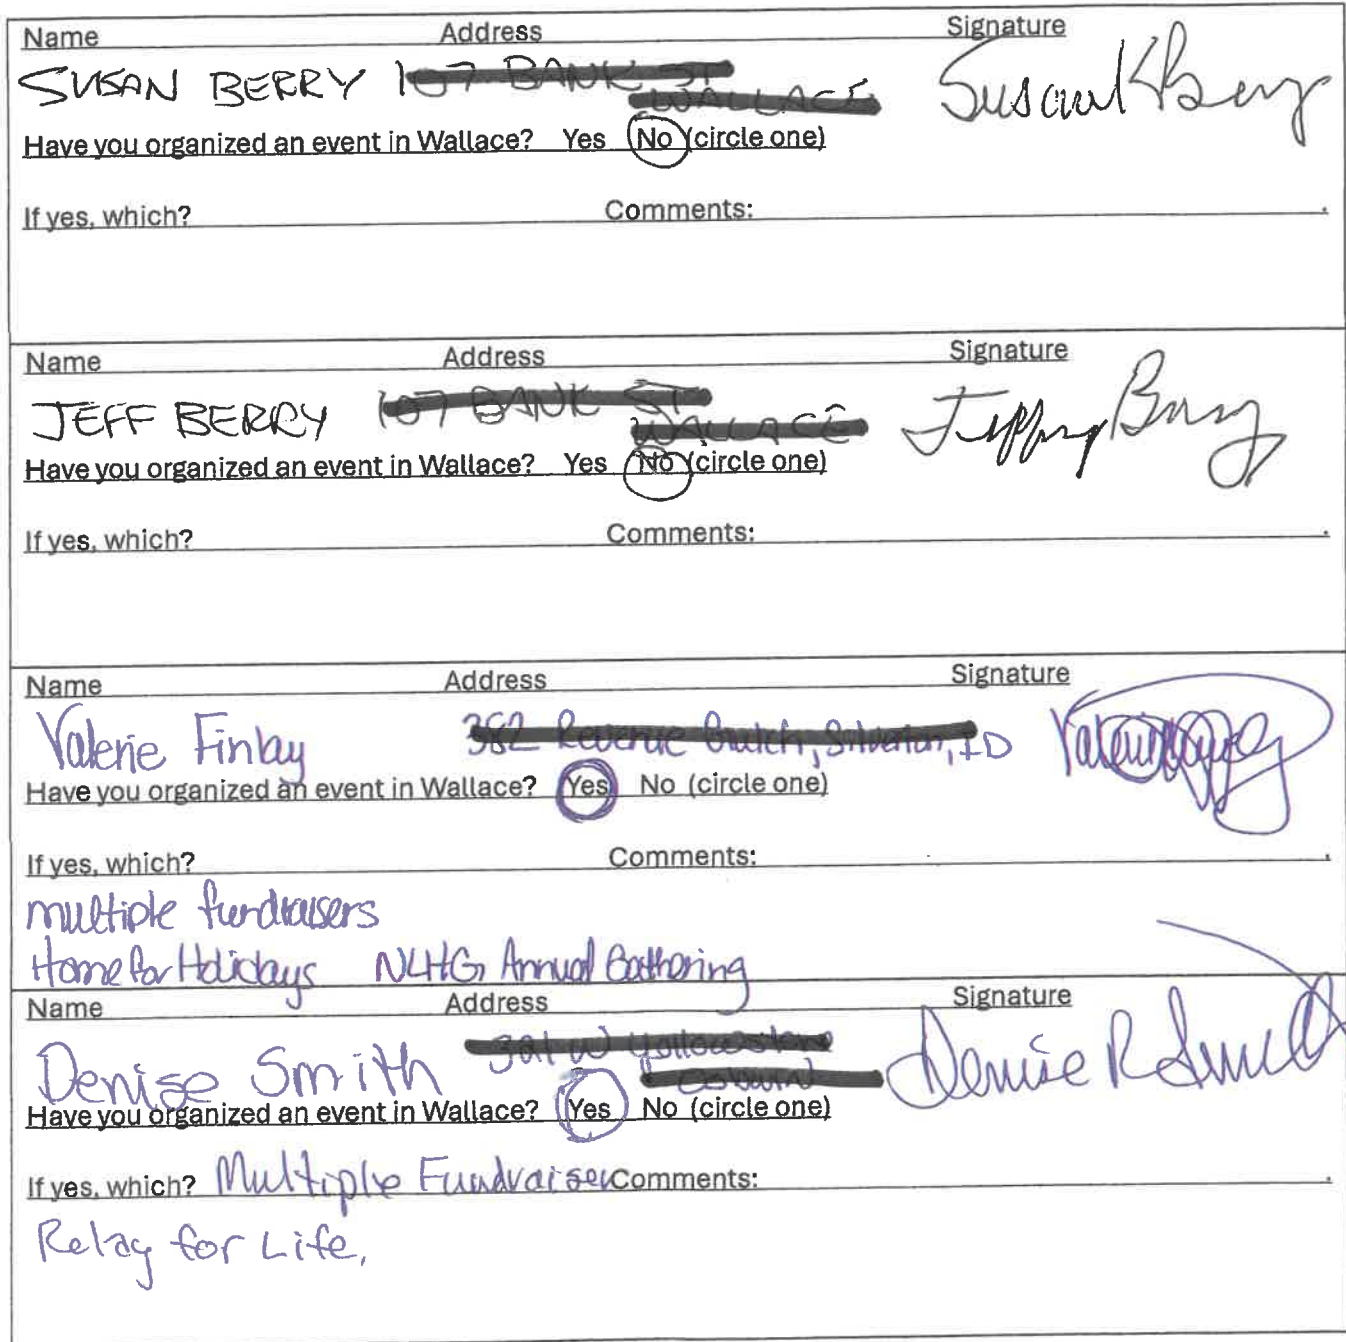 Name Address Signature
SUSAN BERRY Susan K Berry
Have you organized an event in Wallace? Yes No (circle one)
If yes, which? Comments:
Name Address Signature
JEFF BERRY Jeffrey Berry
Have you organized an event in Wallace? Yes No (circle one)
If yes, which? Comments:
Name Address Signature
Valerie Finlay
Have you organized an event in Wallace? Yes No (circle one)
If yes, which? Comments:
multiple fundraisers
Home for Holidays NLHG Annual Gathering
Name Address Signature
Denise Smith Denise R Smith
Have you organized an event in Wallace? Yes No (circle one)
If yes, which? Multiple Fundraiser Comments:
Relay for Life,